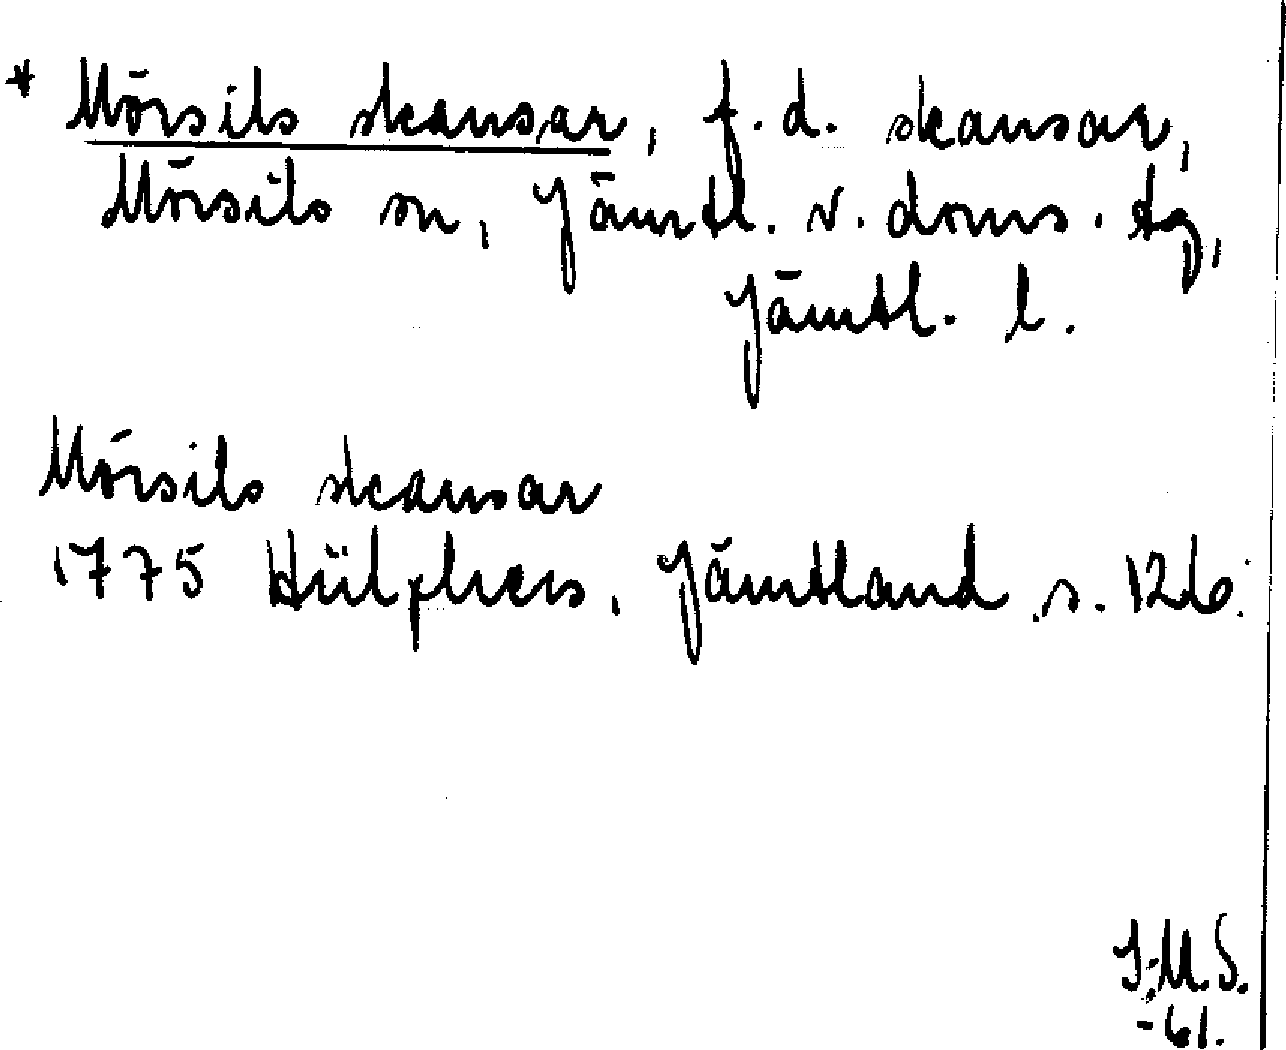 * Mörsils skansar, f.d. skansar,
Mörsils sn, Jämtl. v. doms. tg,
Jämtl. l.
Mörsils skansar
1775 Hülphers, Jämtland s. 126.
I.M.S.
-61.